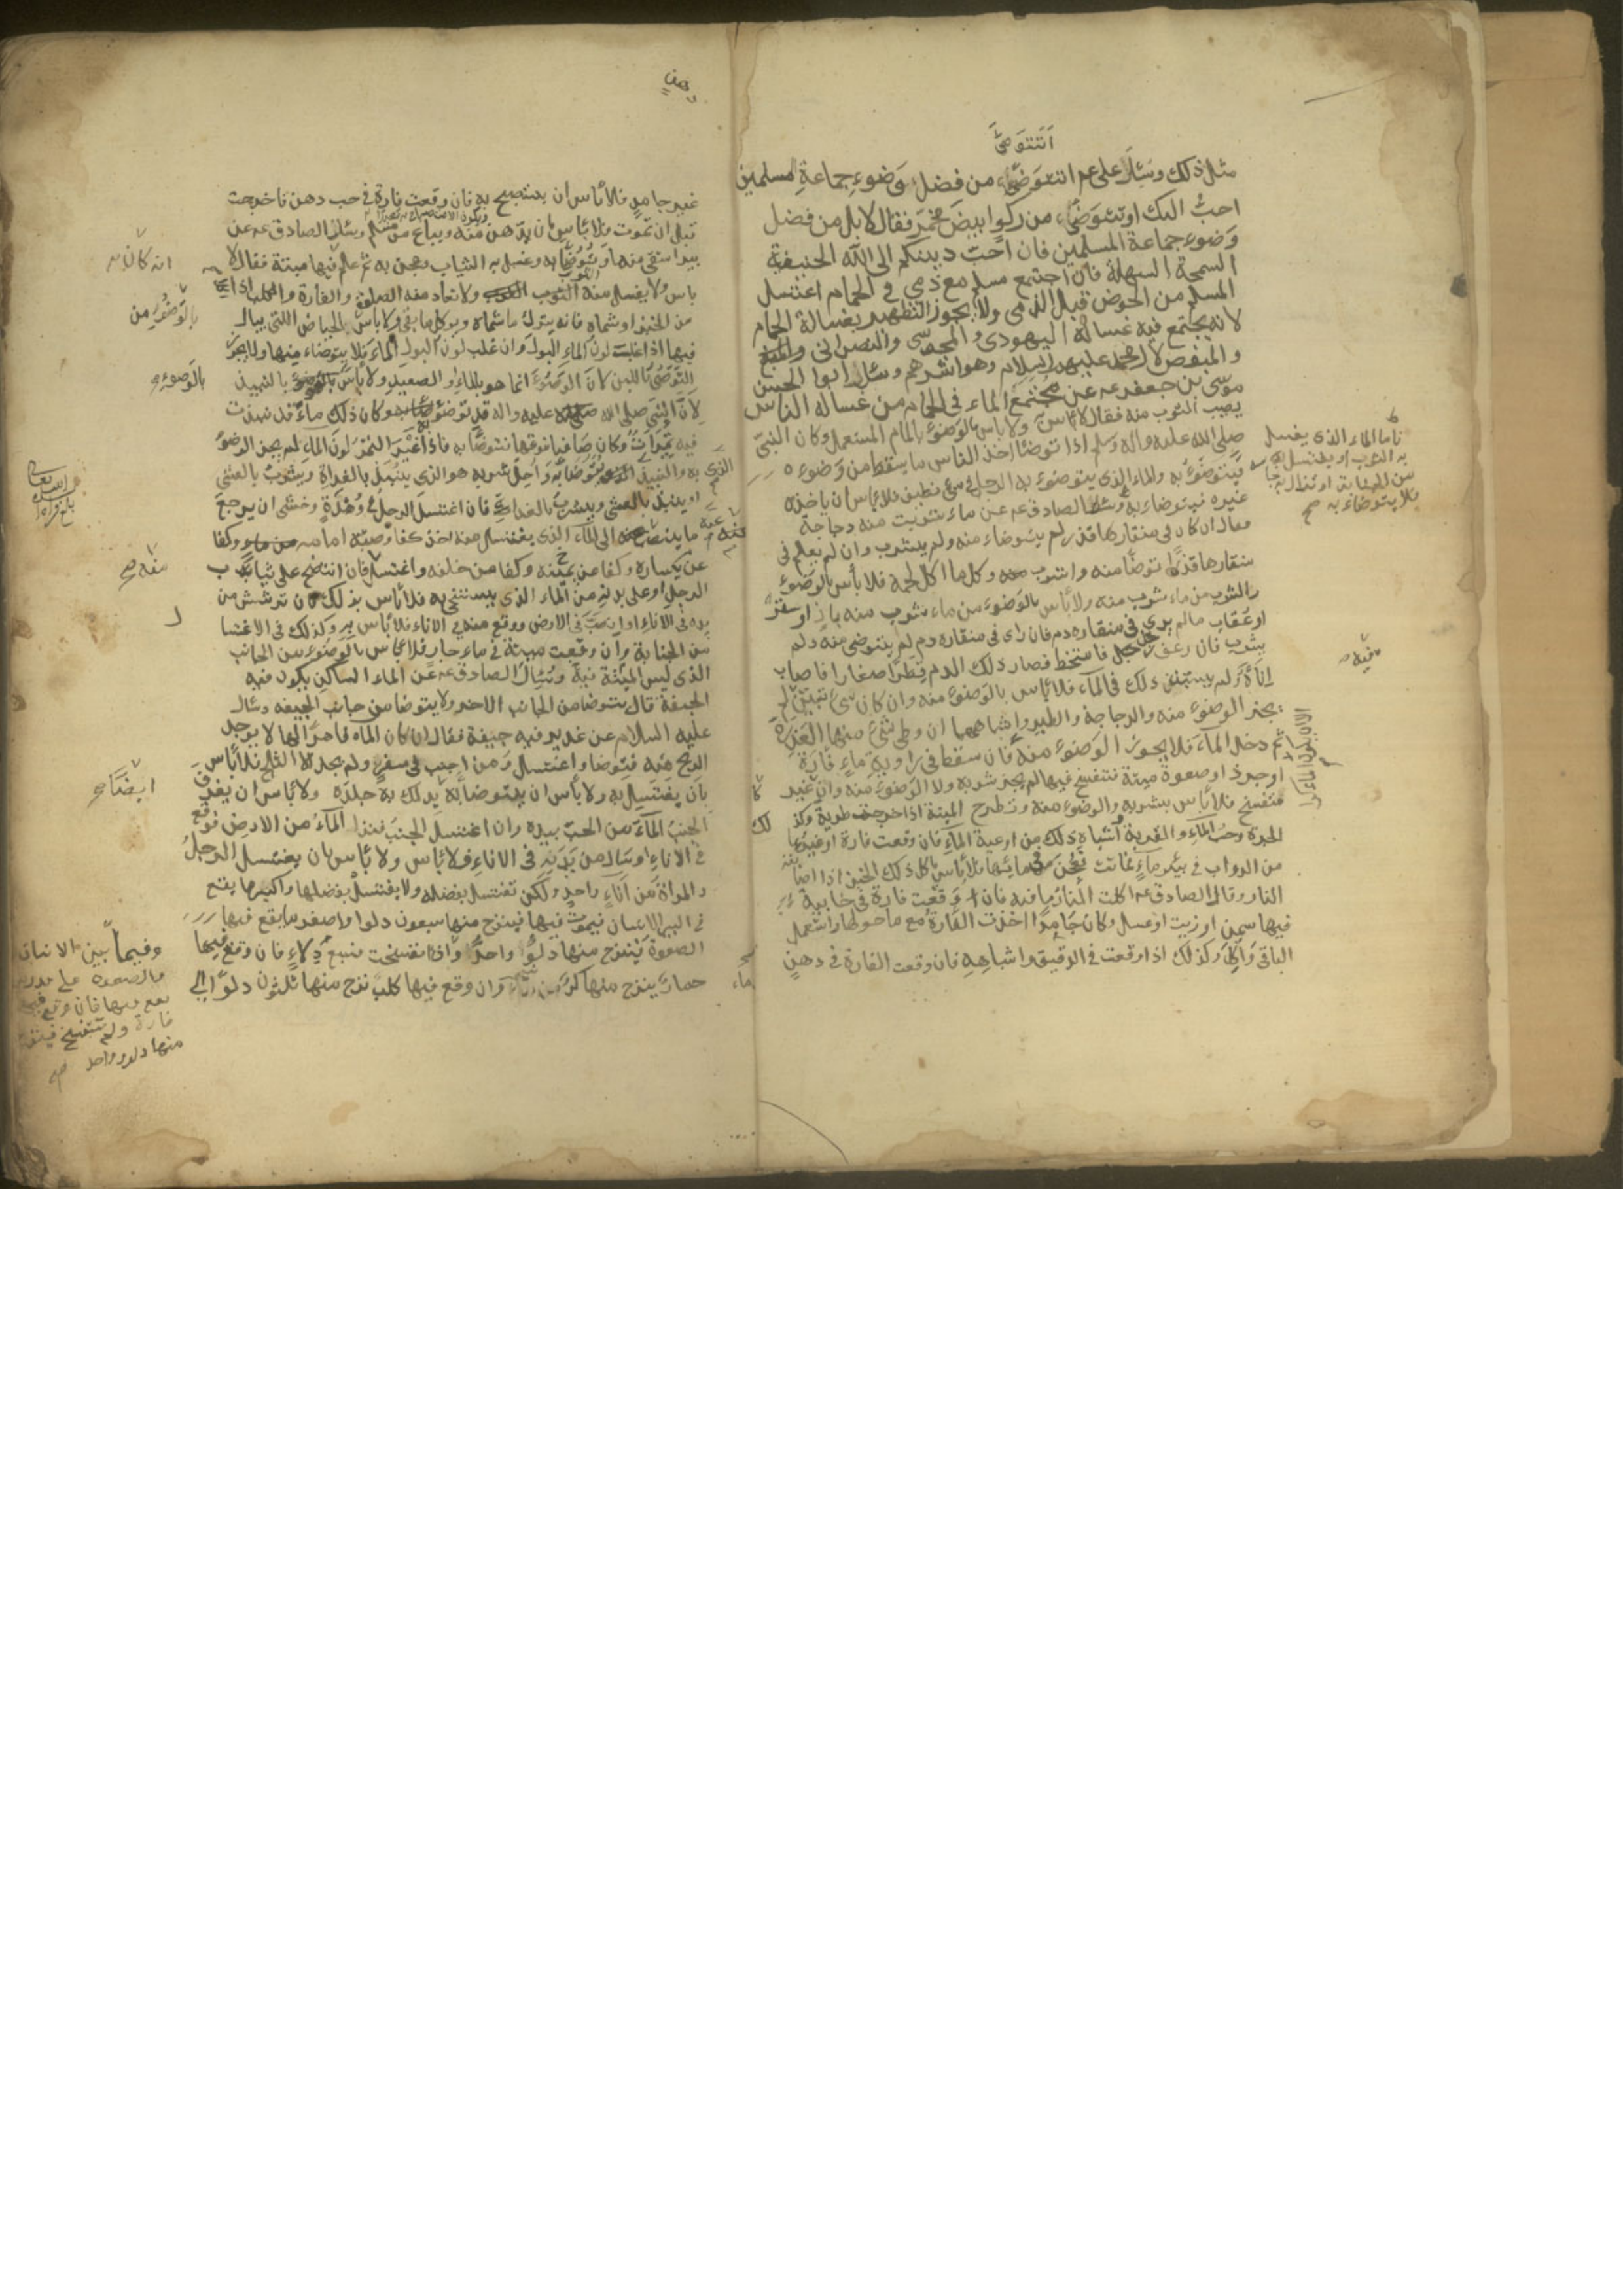 أتتوضى
مثل ذلك وسئل على عم اتتوضى من فضل وضوء جماعة المسلمين
احب اليك او تتوضى من ركو ابيض مخمر فقال لا بل من فضل
وضوء جماعة المسلمين فان احب دينكم الى الله الحنيفية
السمحة السهلة فان اجتمع مسلم مع ذمي في الحمام اغتسل
المسلم من الحوض قبل الذمى ولا يجوز التطهير بغسالة الحمام
لانه يجتمع فيه غسالة اليهودى و المجوسى والنصرانى
و المبغض لال محمد عليهم السلام وهو اشرهم وسئل ابوا الحسن
موسى بن جعفر عه عن مجتمع الماء فى الحمام من غسالة الناس
يصيب الثوب منه فقال لا باس ولا باس بالوضوء بالماء المستعمل وكان النبى
صلى الله عليه واله وسلم اذا توضئ اخذ الناس ما يسقط من وضوءه
فيتوضؤ به والماء الذى يتوضوء به الرجل فى شئ نظيف فلا باس ان ياخذه
غيره فيتوضاء به وسئل الصادق عم عن ماء شربت منه دجاجة
فقال ان كان فى منقارها قذر لم يتوضاء منه ولم يشرب وان لم يعلم فى
منقارها قذرا توضا منه واشرب وكل ما اكل لحمه فلا باس بالوضوء
والشرب من ماء شرب منه ولا باس بالوضوء من ماء شرب منه باز او صقر
او عقاب مالم يرى فى منقاره دم فان راى فى منقاره دم لم يتوضى منه ولم
يشرب فان رعف رجل فامتخط فصار ذلك الدم قطرا صغارا فاصاب
اناءه ولم يستبن ذلك فى الماء فلا باس بالوضوء منه وان كان شئ تبين لم
يجز الوضوء منه والدجاجة والطير واشباههما ان وطى شئ منها العذرة
ثم دخل الماء فلا يجوز الوضوء منه فان سقط فى راوية ماء فارة
او جرذ او صعوة ميتة فتفسخ فيها لم يجز شربه ولا الوضوء منه وان غير
متفسخ فلا باس بشربه والوضوء منه وتطرح الميتة اذا خرجت طرية وكذلك
الجرة وحب الماء والقربة واشباه ذلك من اوعية الماء فان وقعت فارة او غيرها
من الدواب فى بئر ماء فماتت فعجن من مائها فلا باس باكل ذلك الخبز اذا اصابته
النار وقال الصادق عم اكلت النار ما فيه فان وقعت فارة فى خابية
فيها سمن او زيت او عسل وكان جامدا اخذت الفارة مع ما حولها واستعمل
الباقى واكل وكذلك اذا وقعت فى الدقيق واشباهه فان وقعت الفارة فى دهن
فاما الماء الذى يغسل
به الثوب او يغتسل به
من الجنابة او تزال به نجاسة
فلا يتوضاء به صح
فيه
غير جامد فلا باس ان يستصبح به فان وقعت فارة فى حب دهن فاخرجت
قبل ان تموت فلا باس بان يدهن منه ويباع من مسلم وسئل الصادق عه عن
بير استقى منها وتوضأ به وغسل به الثياب وعجن به ثم علم فيها ميتة فقال لا
باس ولا يغسل منه الثوب ولا تعاد منه الصلوة والفارة والكلب اذا اكلا
من الخبز او شماه فانه يترك ما شماه ويوكل ما بقى ولا باس بالحياض اللتى يبال
فيها اذا غلب لون الماء البول وان غلب لون البول الماء فلا يتوضاء منها ولا يجوز
التوضى باللبن لان الوضوء انما هو بالماء او الصعيد ولا باس بالنبيذ
لان النبى صلى الله عليه واله قد توضؤ به وكان ذلك ماء قد نبذت
فيه تميرات وكان صافيا فوقها فتوضا به فاذا غير التمر لون الماء لم يجز الوضوء
به والنبيذ الذى يتوضا به واحل شربه هو الذى ينبذ بالغداة ويشرب بالعشى
او ينبذ بالعشى ويشرب بالغداة فان اغتسل الرجل فى وهدة وخشى ان يرجع
ما ينصب عنه الى الماء الذى يغتسل منه اخذ كفا وصبه امامه وكفا
عن يساره وكفا عن يمينه وكفا من خلفه واغتسل فان انتضح على ثياب
الرجل او على بدنه من الماء الذى يستنجى به فلا باس بذلك فان ترشش من
يده فى الاناء او انصب فى الارض ووقع منه فى الاناء فلا باس به وكذلك فى الاغتسا
من الجنابة وان وقعت ميتة فى ماء جار فلا باس بالوضوء من الجانب
الذى ليس الميتة فيه وسئل الصادق عه عن الماء الساكن يكون فيه
الجيفة قال يتوضا من الجانب الاخر ولا يتوضا من جانب الجيفه وسئل
عليه السلام عن غدير فيه جيفة فقال ان كان الماء قاهرا لها لا يوجد
الريح منه فتوضا واغتسل ومن اجنب فى سفر ولم يجد الا الثلج فلا باس
بان يغتسل به ولا باس ان يتوضا به يدلك به جلده ولا باس ان يغرف
الجنب الماء من الحب بيده وان اغتسل الجنب فنزا الماء من الارض فوقع
فى الاناء او سال من بدنه فى الاناء فلا باس ولا باس بان يغتسل الرجل
والمراة من اناء واحد ولكن تغتسل بفضله ولا يغتسل بفضلها واكبر ما يقع
فى البير الانسان فيموت فيها فينزح منها سبعون دلوا واصغر ما يقع فيها
الصعوة ينزح منها دلوا واحد واذا تفسخت فسبع دلاء فان وقع فيها
حمار ينزح منها كر من ماء وان وقع فيها كلب نزح منها ثلثون دلوا الى
انه كان
بالوضوء من
بالوضوء
منه صح
ايضا صح
وفيما بين الانسان
والصعوة على قدر ما
يقع فيها فان وقع فيها
فارة ولم تتفسخ فينزح
منها دلو واحد صح